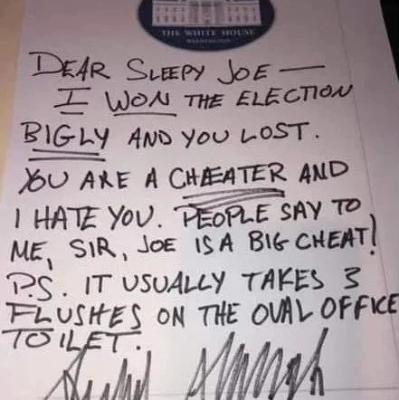 THE WHITE HOUSE
WASHINGTON
DEAR SLEEPY JOE —
I WON THE ELECTION
BIGLY AND YOU LOST.
YOU ARE A CHEATER AND
I HATE YOU. PEOPLE SAY TO
ME, SIR, JOE IS A BIG CHEAT!
P.S. IT USUALLY TAKES 3
FLUSHES ON THE OVAL OFFICE
TOILET.